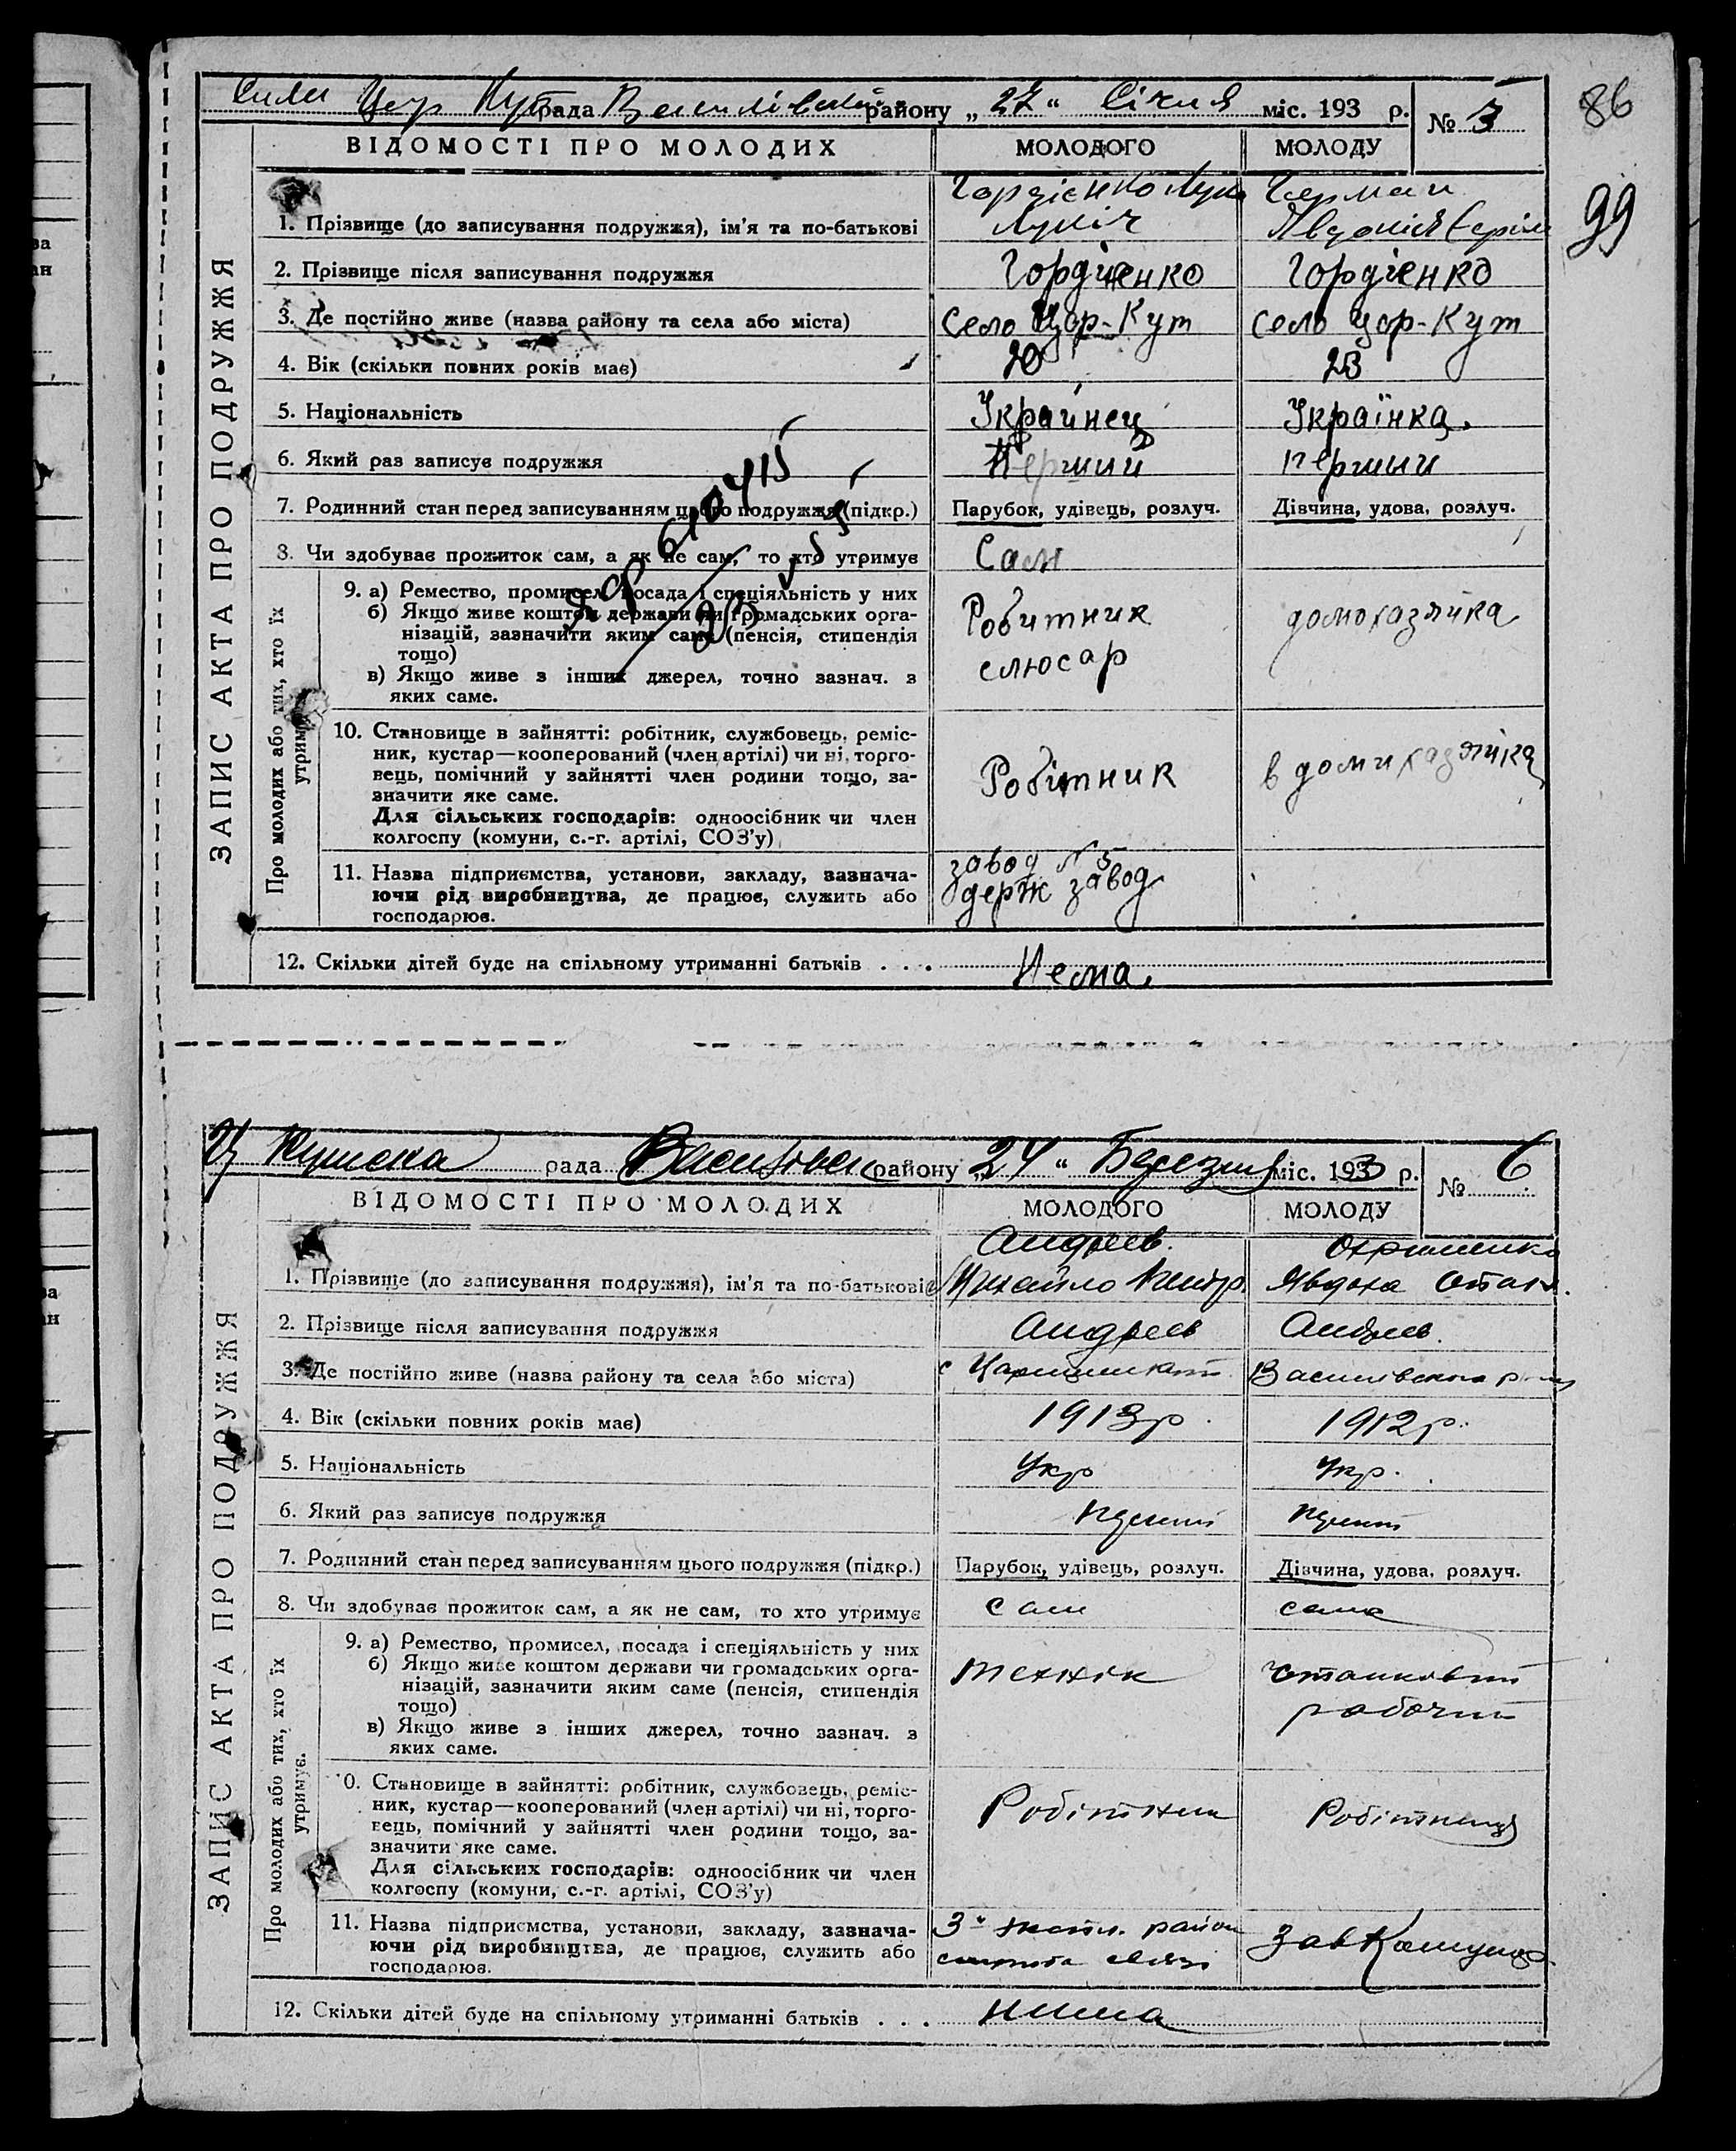 Цар Кут рада Василівський району „27“ Січня міс. 193 р.
№ 3
86
99
ВІДОМОСТІ ПРО МОЛОДИХ МОЛОДОГО МОЛОДУ
ЗАПИС АКТА ПРО ПОДРУЖЖЯ
Гордієнко Лука Герман
1. Прізвище (до записування подружжя), ім'я та по-батькові Лукіч Явдокія
2. Прізвище після записування подружжя Гордиенко Гордіенко
3. Де постійно живе (назва району та села або міста) Село Цар-Кут Село Цар-Кут
4. Вік (скільки повних років має) 20 23
5. Національність Украинец Українка.
6. Який раз записує подружжя Перший перший
7. Родинний стан перед записуванням цього подружжя (підкр.) Парубок, удівець, розлуч. Дівчина, удова, розлуч.
8. Чи здобуває прожиток сам, а як не сам, то хто утримує Сам
Про молодих або тих, хто їх утримує.
9. а) Ремество, промисел, посада і спеціяльність у них
б) Якщо живе коштом держави чи громадських орга-
нізацій, зазначити яким саме (пенсія, стипендія
тощо)
в) Якщо живе з інших джерел, точно зазнач. з
яких саме.
Робитник
слюсар
домохазяйка
10. Становище в зайнятті: робітник, службовець, реміс-
ник, кустар—кооперований (член артілі) чи ні, торго-
вець, помічний у зайнятті член родини тощо, за-
значити яке саме.
Для сільських господарів: одноосібник чи член
колгоспу (комуни, с.-г. артілі, СОЗ'у)
Робітник
в доми хазяйка
11. Назва підприємства, установи, закладу, зазнача-
ючи рід виробництва, де працює, служить або
господарює.
завод №5
держ завод
12. Скільки дітей буде на спільному утриманні батьків . . . Нема.
рада району „24“ Березня міс. 193 3 р.
№ 6
ВІДОМОСТІ ПРО МОЛОДИХ МОЛОДОГО МОЛОДУ
ЗАПИС АКТА ПРО ПОДРУЖЖЯ
Андреев. Охрименко
1. Прізвище (до записування подружжя), ім'я та по-батькові Михайло Явдоха
2. Прізвище після записування подружжя Андреев Андреев.
3. Де постійно живе (назва району та села або міста) с Василівського
4. Вік (скільки повних років має) 1913 р. 1912 р.
5. Національність Укр Укр.
6. Який раз записує подружжя
7. Родинний стан перед записуванням цього подружжя (підкр.) Парубок, удівець, розлуч. Дівчина, удова, розлуч.
8. Чи здобуває прожиток сам, а як не сам, то хто утримує сам сама
Про молодих або тих, хто їх утримує.
9. а) Ремество, промисел, посада і спеціяльність у них
б) Якщо живе коштом держави чи громадських орга-
нізацій, зазначити яким саме (пенсія, стипендія
тощо)
в) Якщо живе з інших джерел, точно зазнач. з
яких саме.
технік
10. Становище в зайнятті: робітник, службовець, реміс-
ник, кустар—кооперований (член артілі) чи ні, торго-
вець, помічний у зайнятті член родини тощо, за-
значити яке саме.
Для сільських господарів: одноосібник чи член
колгоспу (комуни, с.-г. артілі, СОЗ'у)
Робітник
Робітниця
11. Назва підприємства, установи, закладу, зазнача-
ючи рід виробництва, де працює, служить або
господарює.
12. Скільки дітей буде на спільному утриманні батьків . . . нима